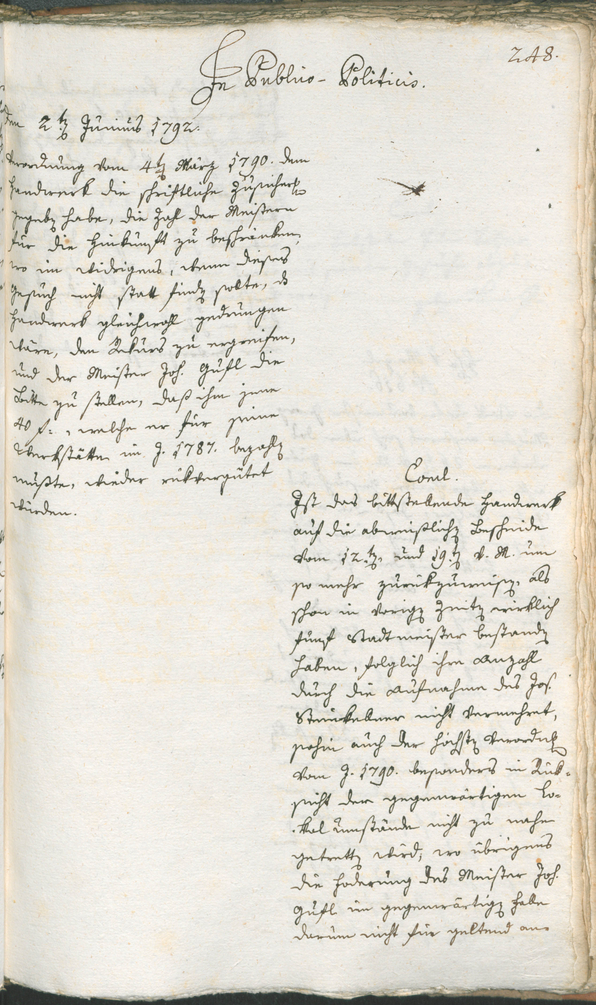 248.
In Publico-Politicis.
den 2tn Junius 1792.
Verordnung vom 4tn März 1790. dem
Handwerk die schriftliche Zusicherung
gegeben habe, die Zahl der Meistern
für die Hinkunft zu beschränken,
wo im widrigens, wenn dieses
Gesuch nicht statt finden sollte, das
Handwerk gleichwohl gedrungen
wäre, den Rekurs zu ergreifen,
und der Meister Joh. Gufl die
Bitte zu stellen, daß ihm jene
40 f:, welche er für seine
Werkstätte im J. 1787. bezahlen
mußte, wieder rükvergütet
würden.
Concl.
Ist das bittstellende Handwerk
auf die abweislichen Bescheide
vom 12.tn und 19tn v. M. um
so mehr zurükzuweisen, als
schon in vorigen Zeiten wirklich
fünf Stadtmeister bestanden
haben, folglich ihre Anzahl
durch die Aufnahme des Jos.
nicht vermehret,
sohin auch der höchsten Verordnung
vom J. 1790. besonders in Rük-
sicht der gegenwärtigen Lo-
kal Umstände nicht zu nahe
getretten wird, wo übrigens
die Foderung des Meister Joh.
Gufl im gegenwärtigen Falle
darum nicht für geltend an-